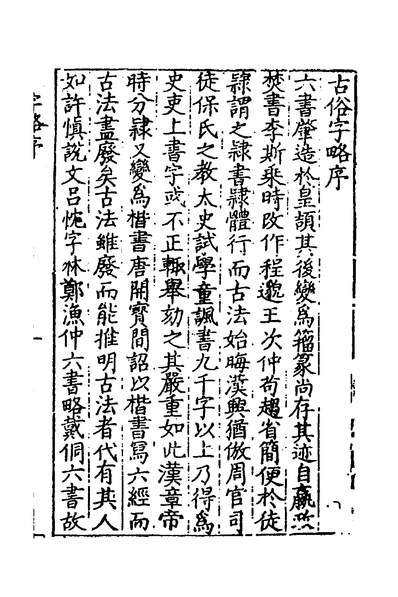 古俗字略序
六書肇造於皇頡其後變爲籀篆尚存其迹自嬴政
焚書李斯乘時改作程邈王次仲苟趨省簡便於徒
隸謂之隸書隸體行而古法始晦漢興猶倣周官司
徒保氏之教太史試學童諷書九千字以上乃得爲
史吏上書字或不正輒舉劾之其嚴重如此漢章帝
時分隸又變爲楷書唐開寳間詔以楷書寫六經而
古法盡廢矣古法雖廢而能推明古法者代有其人
如許慎說文呂忱字林鄭漁仲六書略戴侗六書故
字略序